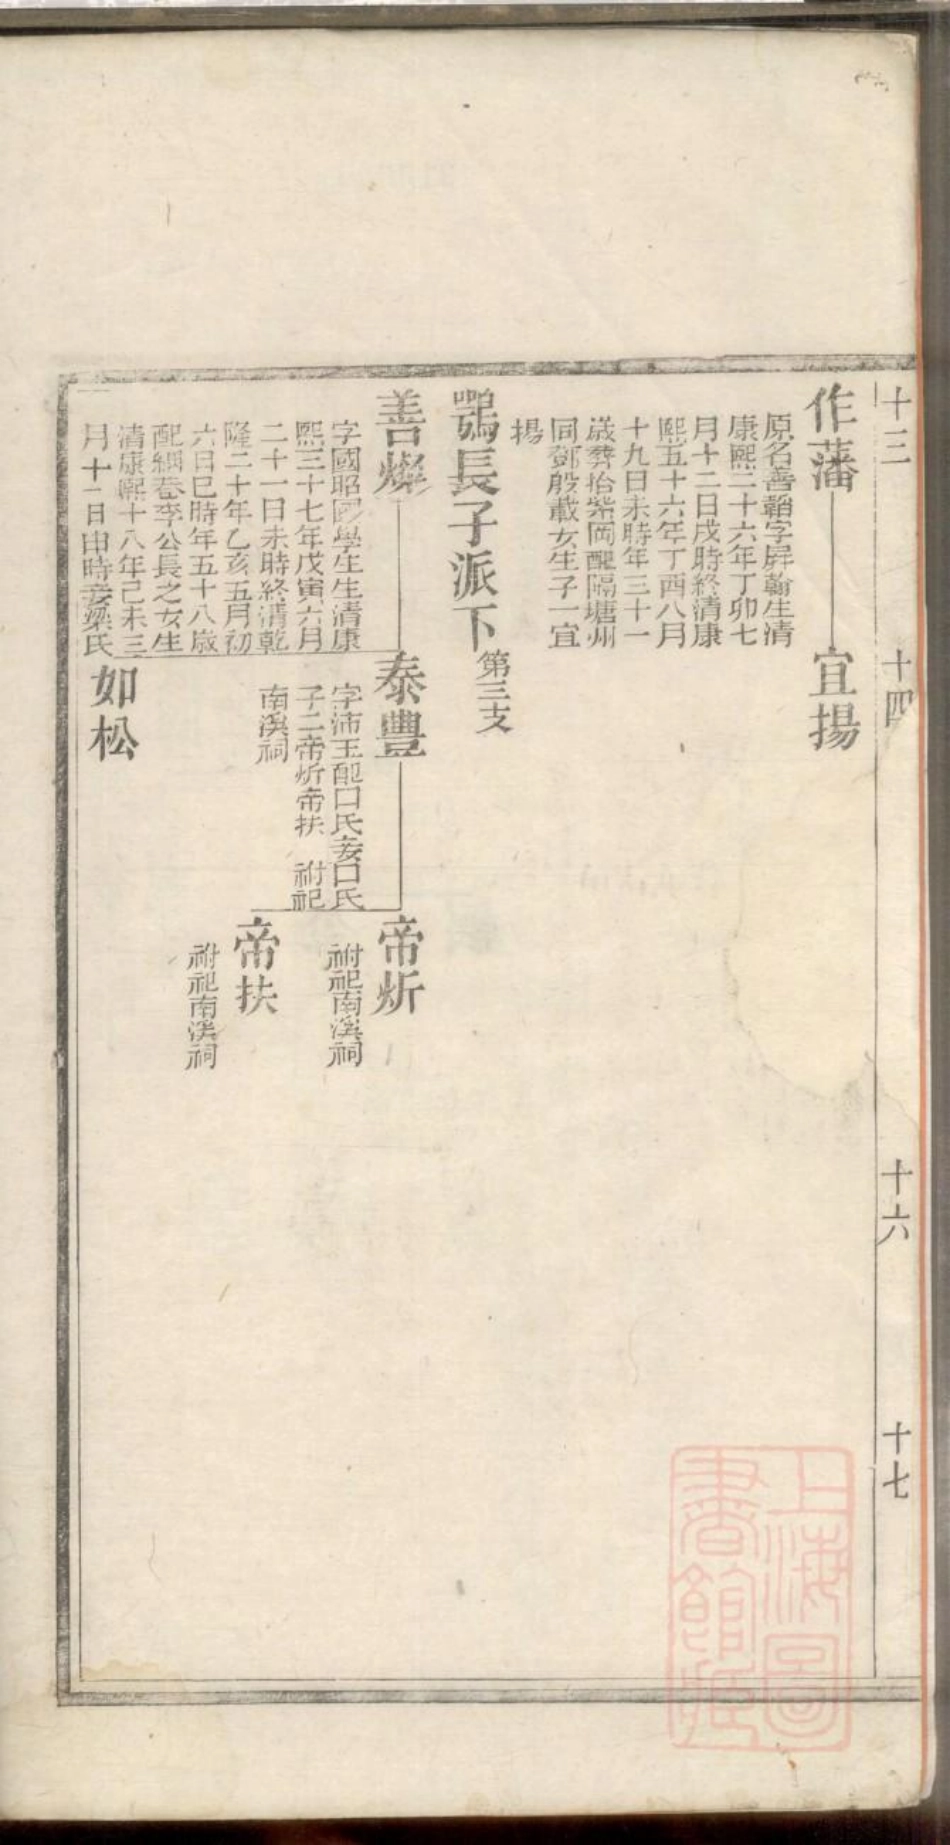 十三
十四
十六
十七
作藩
宜揚
原名善韜字屏翰生清
康熙二十六年丁卯七
月十二日戌時終清康
熙五十六年丁酉八月
十九日未時年三十一
歲葬抬紫岡配隔塘州
同鄧殷載女生子一宜
揚
鶚長子派下
第三支
善燦
字國昭國學生生清康
熙三十七年戊寅六月
二十一日未時終清乾
隆二十年乙亥五月初
六日巳時年五十八歲
配綱巷李公長之女生
清康熙十八年己未三
月十一日申時妾梁氏
泰豐
字沛王配口氏妾口氏
子二帝炘帝扶 祔祀
南溪祠
帝炘
祔祀南溪祠
帝扶
祔祀南溪祠
如松
上海圖
書館藏